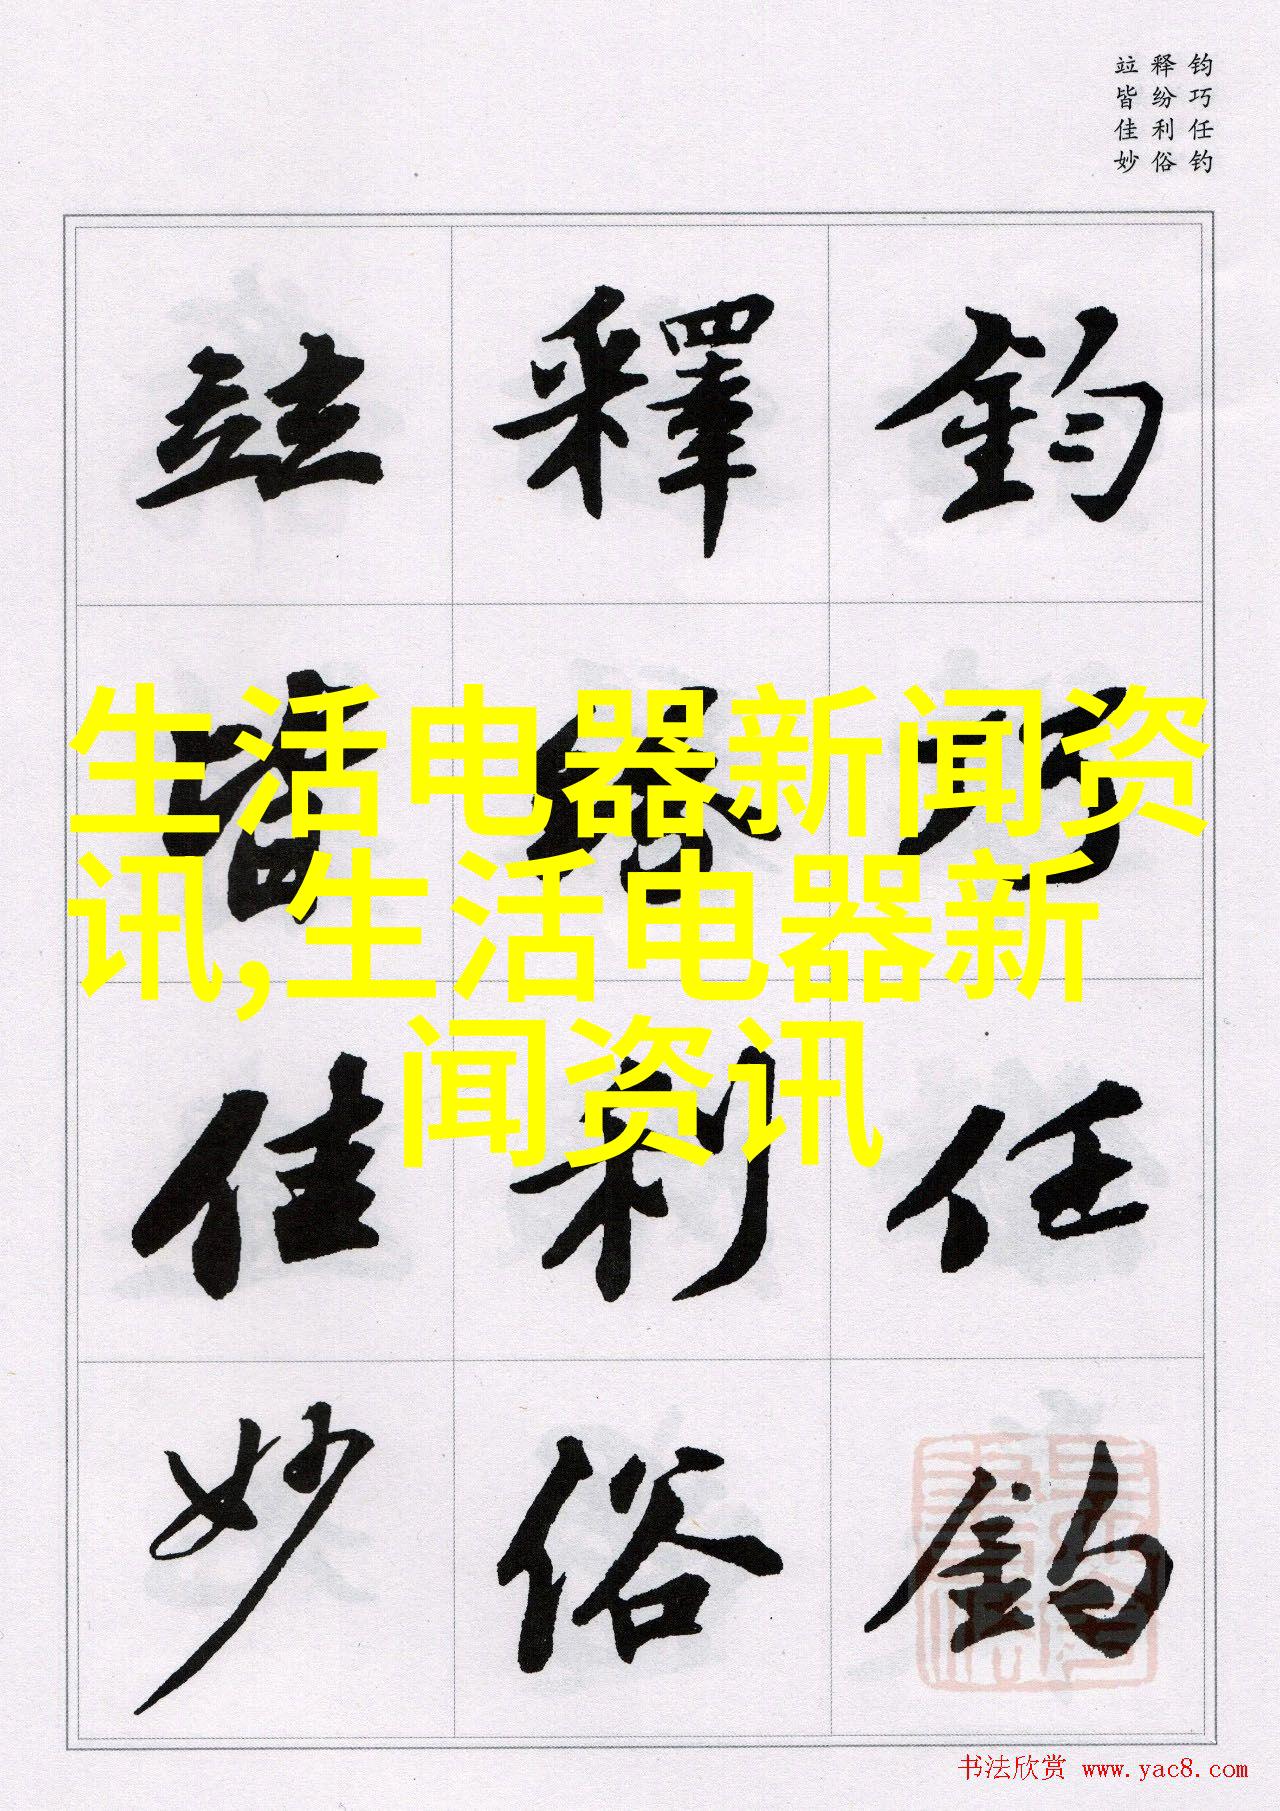 钧巧任钓
释纷利俗
竝皆佳妙
鈞巧任釣
釋紛利俗
竝皆佳妙
生活电器新闻资
讯,生活电器新
闻资讯
书法欣赏 www.yac8.com